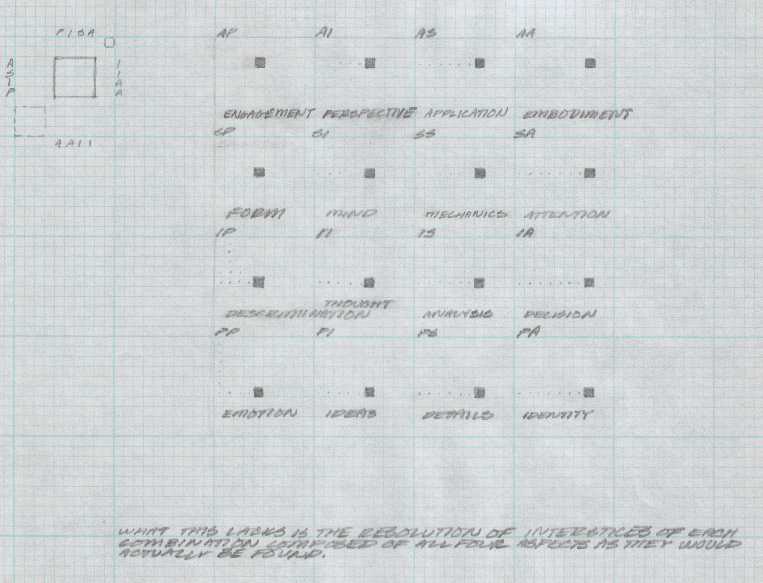 P I S A
A
S
I
P
I
I
A
A
A A I I
AP AI AS AA
ENGAGEMENT PERSPECTIVE APPLICATION EMBODIMENT
SP SI SS SA
FORM MIND MECHANICS ATTENTION
IP II IS IA
THOUGHT
DESCRIMINATION ANALYSIS DECISION
PP PI PS PA
EMOTION IDEAS DETAILS IDENTITY
WHAT THIS LACKS IS THE RESOLUTION OF INTERSTICES OF EACH
COMBINATION COMPOSED OF ALL FOUR ASPECTS AS THEY WOULD
ACTUALLY BE FOUND.